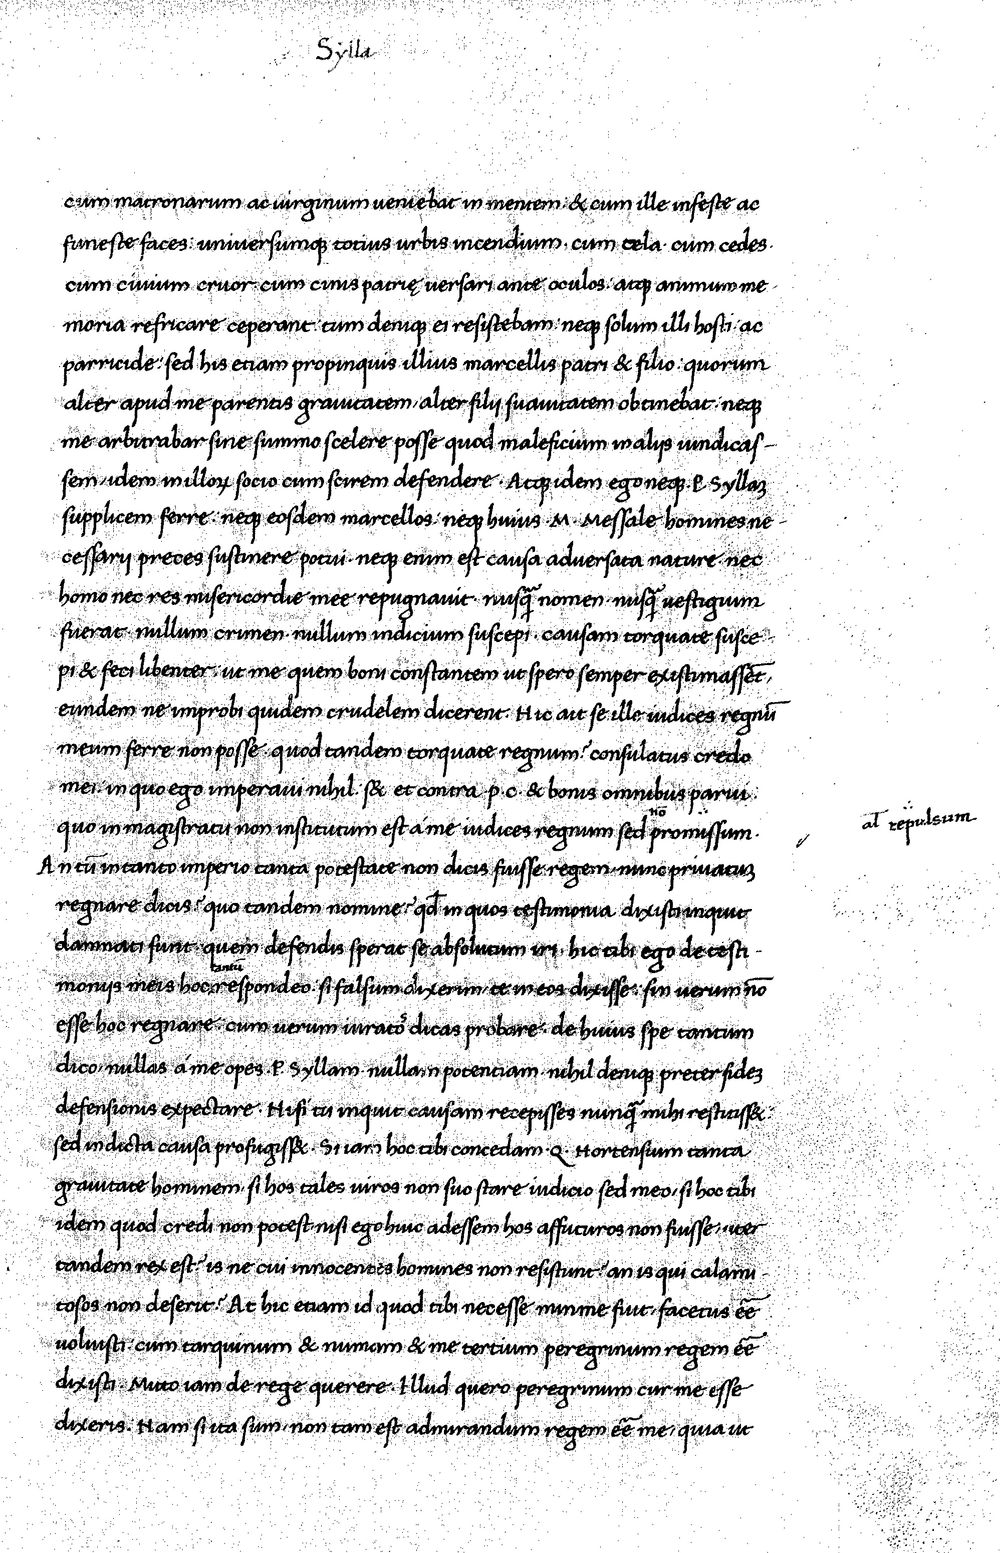 Sylla
cum matronarum ac uirginum ueniebat in mentem. & cum ille infeste ac
funeste faces: universumqꝫ totius urbis incendium. cum tela. cum cedes.
cum civium cruor. cum cinis patrię versari ante oculos. atqꝫ animum me-
moria refricare ceperant: tum deniqꝫ ei resistebam: neqꝫ solum illi hosti ac
parricide: sed his etiam propinquis illius marcellis patri & filio: quorum
alter apud me parentis grauitatem, alter filij suauitatem obtinebat. neqꝫ
me arbitrabar sine summo scelere posse quod maleficium in alijs uindicas-
sem, idem in illoꝝ socio cum scirem defendere. Atqꝫ idem ego neqꝫ P. Syllaꝫ
supplicem ferre: neqꝫ eosdem marcellos: neqꝫ huius .M. Messale homines ne-
cessarij preces sustinere potui. neqꝫ enim est causa adversata nature. nec
homo nec res misericordie mee repugnauit. nusq̃ nomen. nusq̃ uestigium
fuerat. nullum crimen. nullum indicium suscepi. causam torquate susce-
pi & feci libenter. ut me quem boni constantem ut spero semper existimassēt,
eundem ne improbi quidem crudelem dicerent. Hic ait se ille iudices regnū
meum ferre non posse. quod tandem torquate regnum? consulatus credo
mei. in quo ego imperaui nihil. s& et contra .p.c. & bonis omnibus parui.
quo in magistratu non institutum est á me iudices regnum sed promissum.
nō
al̄ repulsum
An tū in tanto imperio tanta potestate non dicis fuisse regem. nunc priuatuꝫ
regnare dicis? quo tandem nomine? qd̄ in quos testimonia dixisti inquit
damnati sunt. quem defendis sperat se absolutum iri. hic tibi ego de testi-
monijs meis hoc respondeo. si falsum dixerim, te in eos dixisse: sin uerum nō
tantū
esse hoc regnare. cum uerum iuratꝰ dicas probare. de huius spe tantum
dico, nullas á me opes .P. Syllam. nullam potentiam. nihil deniqꝫ preter fideꝫ
defensionis expectare. Nisi tu inquit causam recepisses nunq̃ mihi restitiss&.
sed indicta causa profugiss&. Si iam hoc tibi concedam .Q. Hortensium tanta
grauitate hominem, si hos tales uiros non suo stare iudicio sed meo, si hoc tibi
idem quod credi non potest. nisi ego huic adessem hos affuturos non fuisse, uter
tandem rex est? is ne cui innocentes homines non resistunt? an is qui calami-
tosos non deserit? At hic etiam id quod tibi necesse minime fuit. facetus eē
uoluisti. cum tarquinium & numam & me tertium peregrinum regem eē
dixisti. Mitto iam de rege querere. Illud quero peregrinum cur me esse
dixeris. Nam si ita sum. non tam est admirandum regem eē me, quia ut